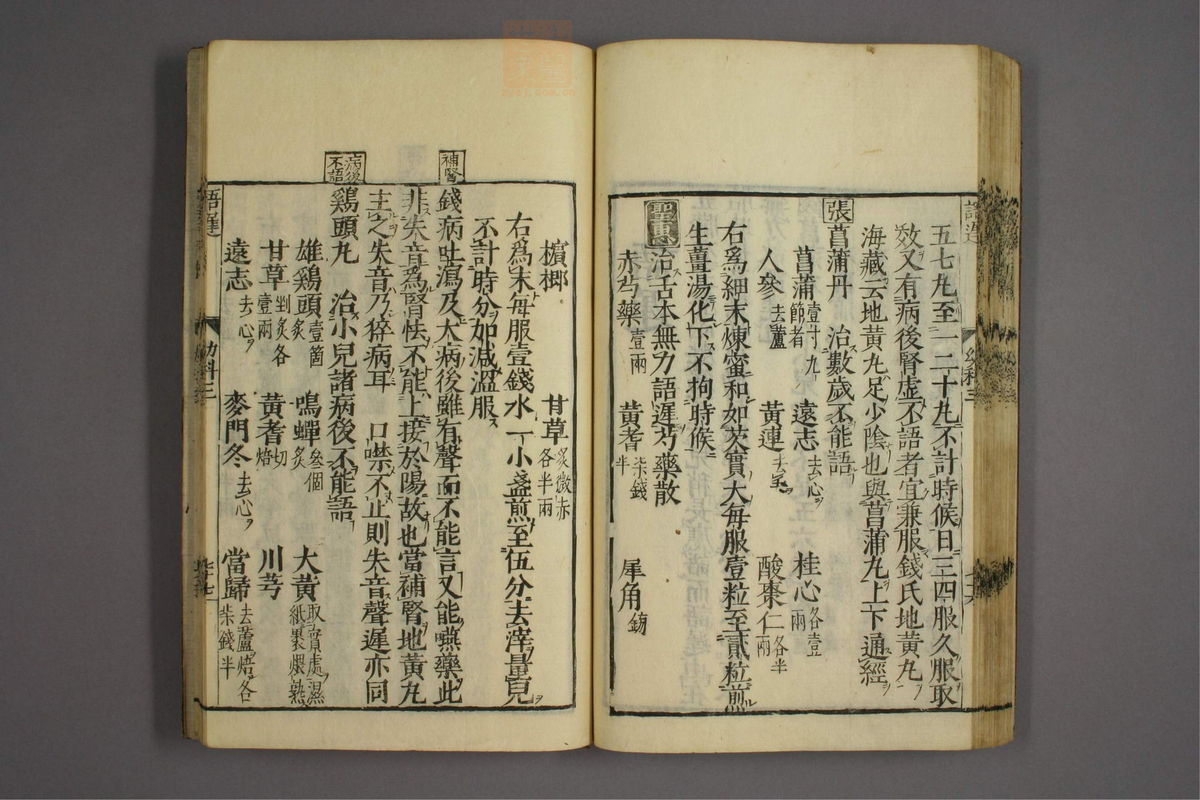 語遲
五七丸至一二十丸不計時候日三四服久服取
效又有病後腎虛不語者宜兼服錢氏地黃丸
海藏云地黃丸足少陰也與菖蒲丸上下通經
張
菖蒲丹 治數歲不能語
菖蒲壹寸九節者 遠志去心 桂心各壹兩
人參去蘆 黃連去毛 酸棗仁各半兩
右爲細末煉蜜和如芡實大每服壹粒至貳粒煎
生薑湯化下不拘時候
聖惠
治舌本無力語遲芍藥散
赤芍藥壹兩 黃耆柒錢半 犀角
檳榔 甘草炙微赤各半兩
右爲末每服壹錢水一小盞煎至伍分去滓量兒
不計時分如減溫服
補腎
錢病吐瀉及大病後雖有聲而不能言又能嚥藥此
非失音爲腎怯不能上接於陽故也當補腎地黃丸
主之失音乃猝病耳 口噤不止則失音聲遲亦同
病後不語
鷄頭丸 治小兒諸病後不能語
雄鷄頭壹箇炙 鳴蟬叁個炙 大黃取實處濕紙裹煨熟
甘草剉炙各壹兩 黃耆切焙 川芎
遠志去心 麥門冬去心 當歸去蘆焙各柒錢半
語遲 幼科三